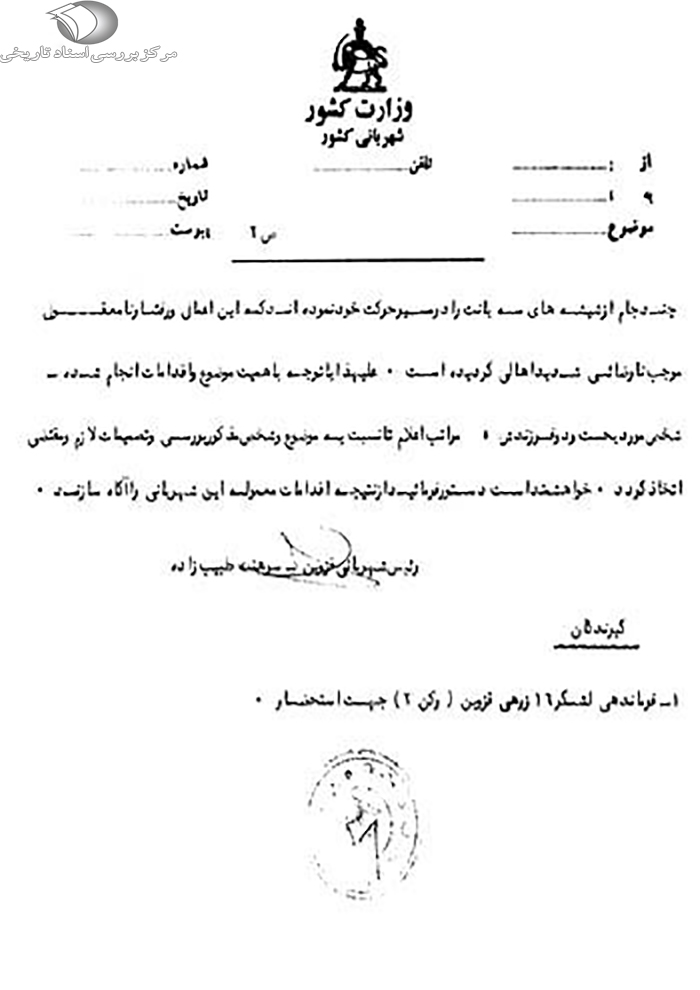 مرکز بررسی اسناد تاریخی
وزارت کشور
شهربانی کشور
از :
تلفن
شماره
به :
تاریخ
موضوع
ص ۲
پیوست
چند جام از شیشه های سه بانت را در مسیر حرکت خود نموده اند که این اعمال و رفتار نامعقول
موجب نارضائی شدید اهالی گردیده است . علیهذا با توجه باهمیت موضوع و اقدامات انجام شده ـ
شخص مورد بحث و دو فرزندش . مراتب اعلام تا نسبت به موضوع و شخص مذکور بررسی و تصمیمات لازم و مقتضی
اتخاذ گردد . خواهشمند است دستور فرمائید از نتیجه اقدامات معموله این شهربانی را آگاه سازند .
رئیس شهربانی قزوین ـ سرهنگ طبیب زاده
گیرندگان
۱ـ فرماندهی لشگر ۱۶ زرهی قزوین ( رکن ۲ ) جهت استحضار .